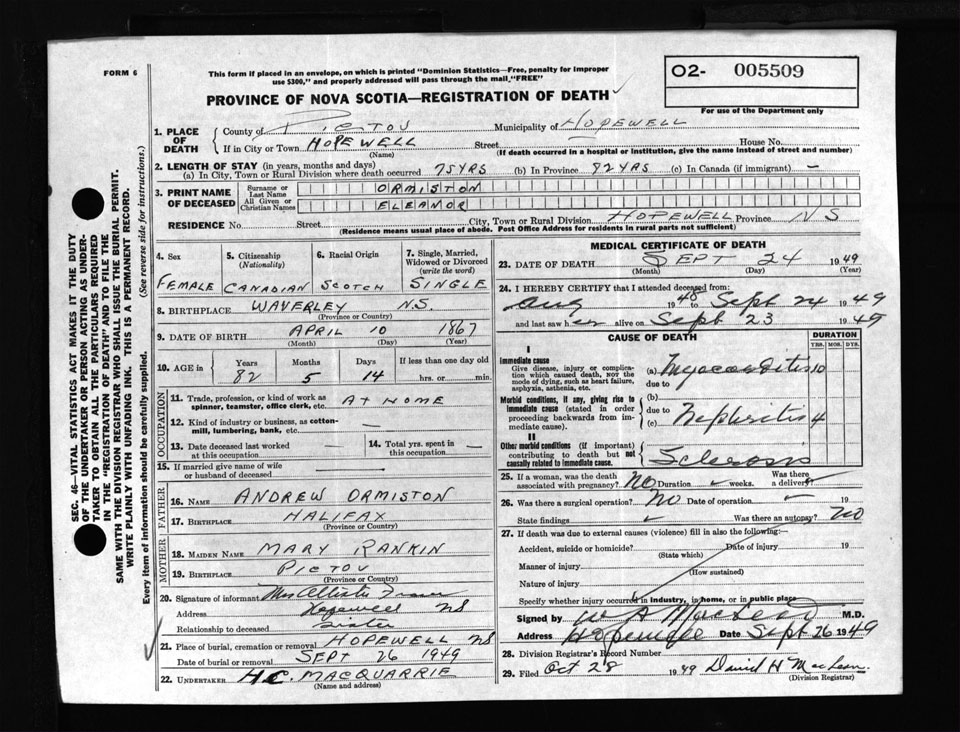 FORM 6
This form if placed in an envelope, on which is printed "Dominion Statistics—Free, penalty for improper
use $300," and properly addressed will pass through the mail "FREE"
O2- 005509
For use of the Department only
PROVINCE OF NOVA SCOTIA—REGISTRATION OF DEATH
1. PLACE OF DEATH
County of PICTOU Municipality of HOPEWELL
If in City or Town HOPEWELL Street House No.
(Name) (If death occurred in a hospital or institution, give the name instead of street and number)
2. LENGTH OF STAY (in years, months and days)
(a) In City, Town or Rural Division where death occurred 75 YRS (b) In Province 82 YRS (c) In Canada (if immigrant) —
3. PRINT NAME OF DECEASED
Surname or Last Name ORMISTON
All Given or Christian Names ELEANOR
RESIDENCE No. Street City, Town or Rural Division HOPEWELL Province NS
(Residence means usual place of abode. Post Office Address for residents in rural parts not sufficient)
4. Sex 5. Citizenship (Nationality) 6. Racial Origin 7. Single, Married, Widowed or Divorced (write the word)
FEMALE CANADIAN SCOTCH SINGLE
8. BIRTHPLACE WAVERLEY N.S.
(Province or Country)
9. DATE OF BIRTH APRIL 10 1867
(Month) (Day) (Year)
10. AGE Years Months Days If less than one day old
82 5 14 hrs. or min.
OCCUPATION
11. Trade, profession, or kind of work as
spinner, teamster, office clerk, etc. AT HOME
12. Kind of industry or business, as cotton-
mill, lumbering, bank, etc. —
13. Date deceased last worked at this occupation — 14. Total yrs. spent in this occupation —
15. If married give name of wife
or husband of deceased —
FATHER
16. NAME ANDREW ORMISTON
17. BIRTHPLACE HALIFAX
MOTHER
18. MAIDEN NAME MARY RANKIN
19. BIRTHPLACE PICTOU
(Province or Country)
20. Signature of informant Mrs Allister Fraser
Address Hopewell NS
Relationship to deceased Sister
21. Place of burial, cremation or removal HOPEWELL NS
Date of burial or removal SEPT 26 1949
22. UNDERTAKER H.C. MACQUARRIE
(Name and address)
MEDICAL CERTIFICATE OF DEATH
23. DATE OF DEATH SEPT 24 1949
(Month) (Day) (Year)
24. I HEREBY CERTIFY that I attended deceased from:
Aug 1948 to Sept 24 1949
and last saw her alive on Sept 23 1949
CAUSE OF DEATH DURATION
YRS. MOS. DYS.
I
Immediate cause
Give disease, injury or complica-
tion which caused death, NOT the
mode of dying, such as heart failure,
asphyxia, asthenia, etc.
(a) Myocarditis 10
due to
Morbid conditions, if any, giving rise to
immediate cause (stated in order
proceeding backwards from im-
mediate cause).
(b)
due to
(c) Nephritis 4
II
Other morbid conditions (if important)
contributing to death but not
causally related to immediate cause.
Sclerosis
25. If a woman, was the death
associated with pregnancy? NO Duration weeks. Was there a delivery
26. Was there a surgical operation? NO Date of operation 19
State findings Was there an autopsy? NO
27. If death was due to external causes (violence) fill in also the following:—
Accident, suicide or homicide? Date of injury 19
(State which)
Manner of injury
(How sustained)
Nature of injury
Specify whether injury occurred in industry, in home, or in public place
Signed by W A MacLeod M.D.
Address Hopewell Date Sept 26 1949
28. Division Registrar's Record Number
29. Filed Oct 28 1949 David H MacLean
(Division Registrar)
SEC. 46—VITAL STATISTICS ACT MAKES IT THE DUTY
OF THE UNDERTAKER OR PERSON ACTING AS UNDER-
TAKER TO OBTAIN ALL THE PARTICULARS REQUIRED
IN THE "REGISTRATION OF DEATH" AND TO FILE THE
SAME WITH THE DIVISION REGISTRAR WHO SHALL ISSUE THE BURIAL PERMIT.
WRITE PLAINLY WITH UNFADING INK. THIS IS A PERMANENT RECORD.
Every item of information should be carefully supplied. (See reverse side for instructions.)